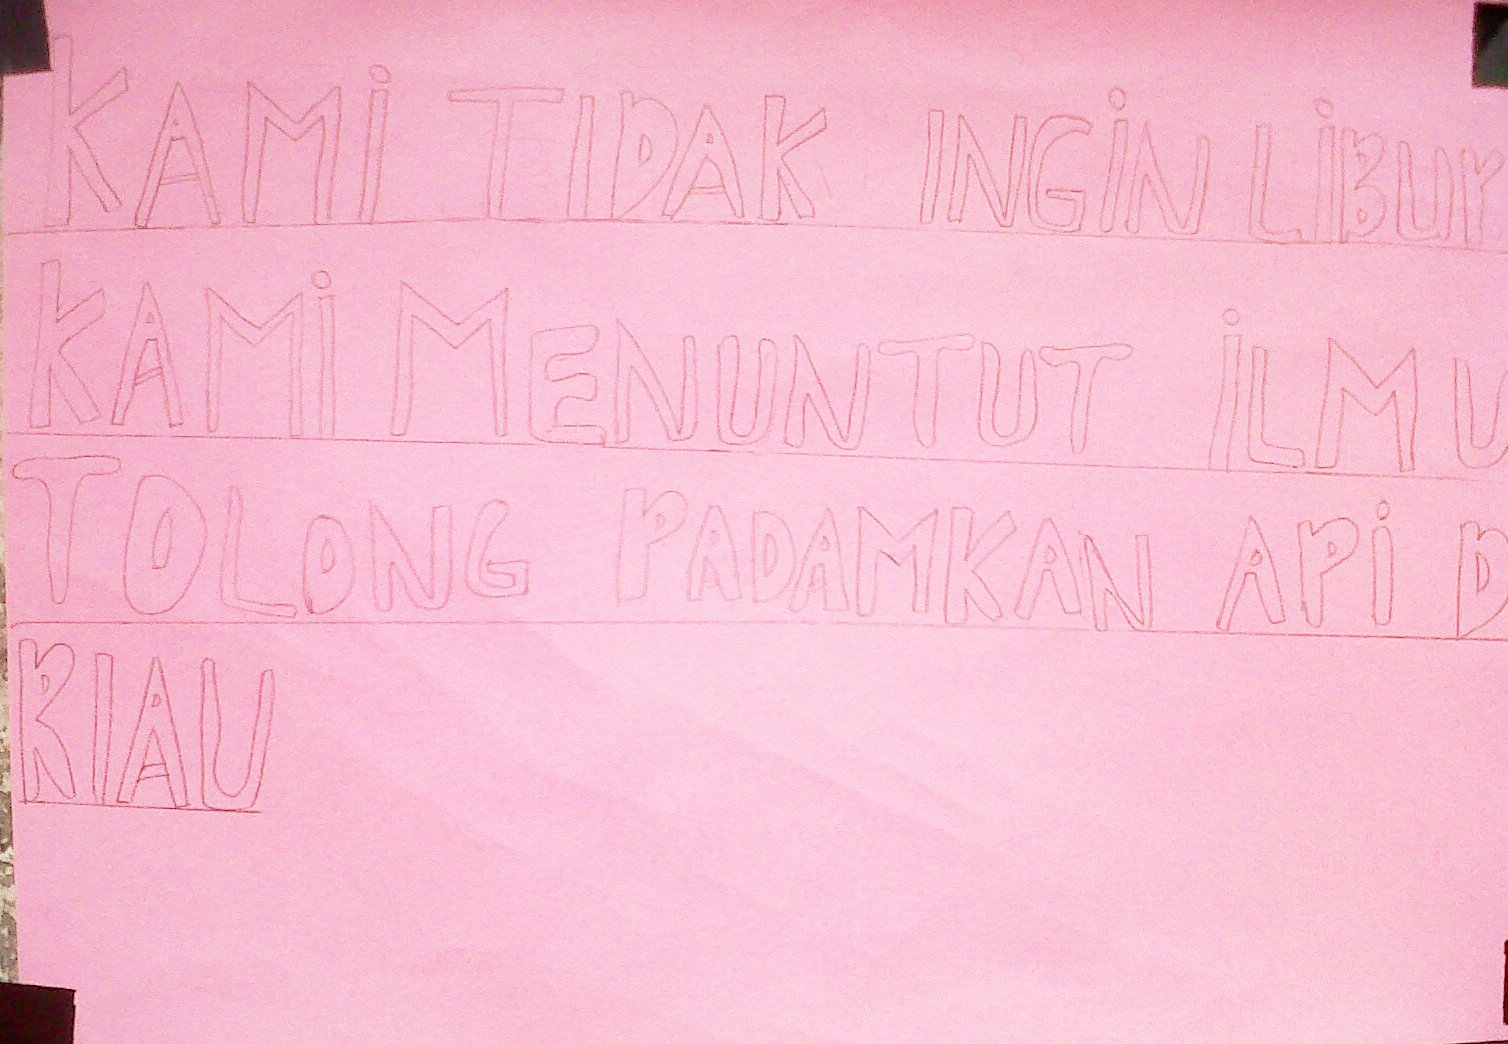 KAMi TIDAK INGiN LiBUR
KAMi MENUNTUT iLMU
TOLONG PADAMKAN APi D
RIAU